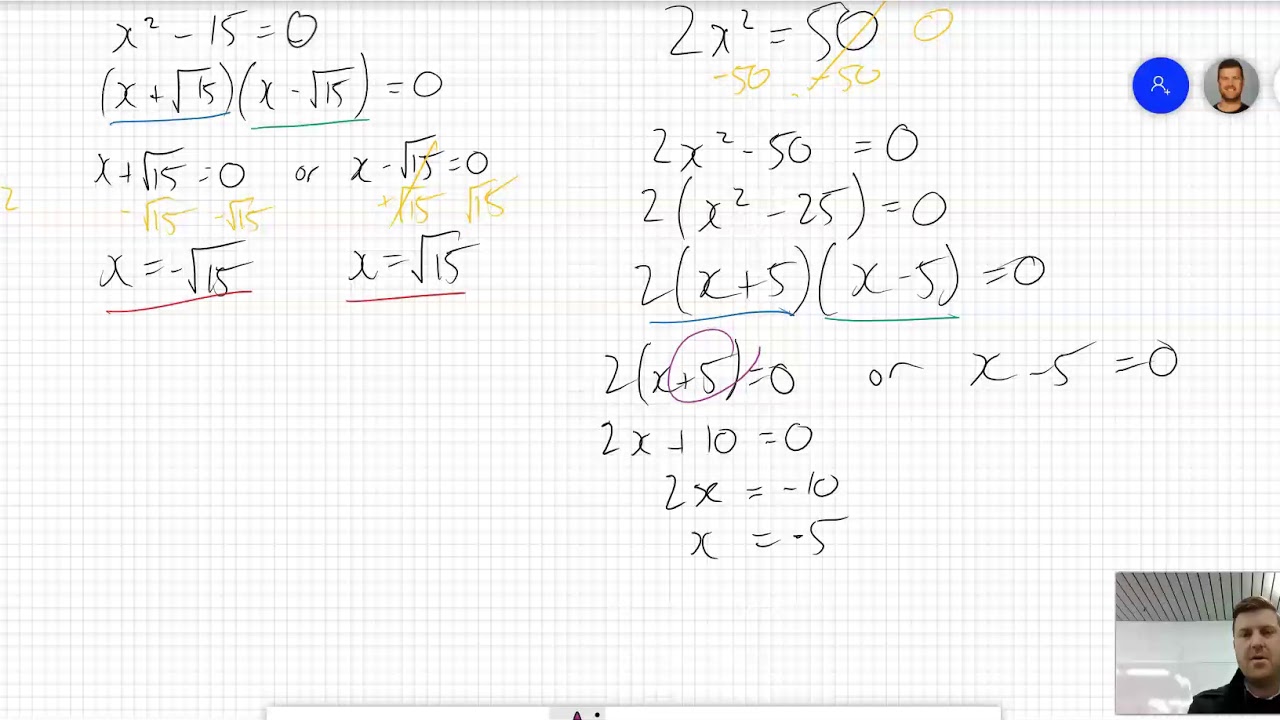 x² - 15 = 0
(x + √15)(x - √15) = 0
x + √15 = 0 or x - √15 = 0
-√15 -√15 +√15 √15
x = -√15 x = √15
2
2x² = 50 0
-50 -50
2x² - 50 = 0
2(x² - 25) = 0
2(x + 5)(x - 5) = 0
2(x + 5) = 0 or x - 5 = 0
2x + 10 = 0
2x = -10
x = -5